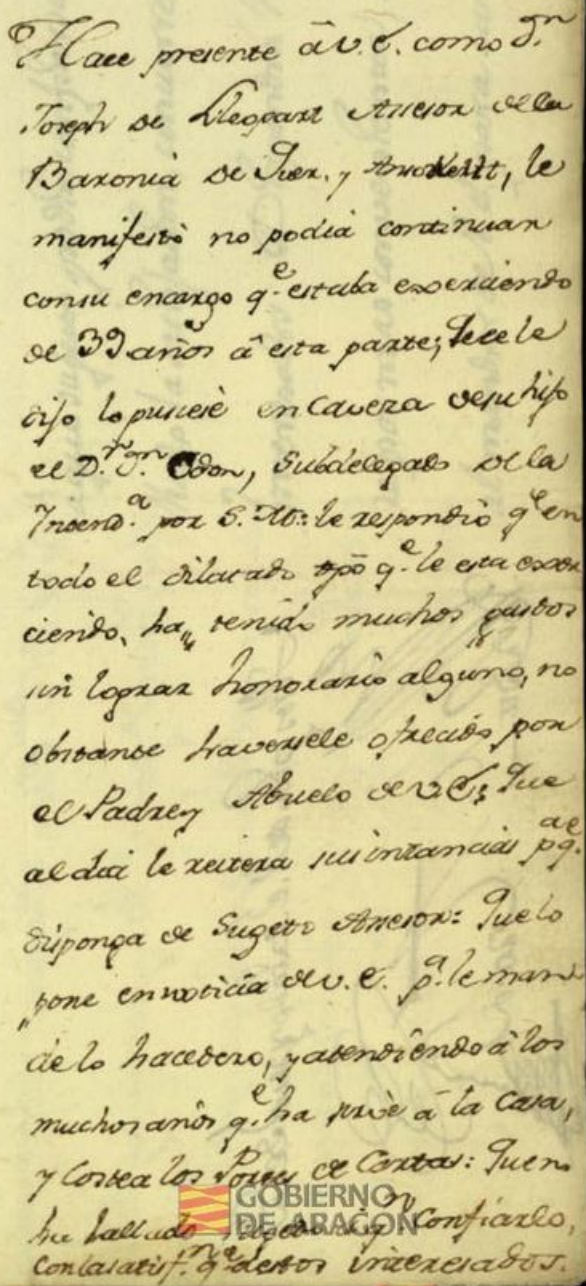 Hace presente â V.E. como Dn.
Joseph de Llopart Assesor de la
Baronia de Quer. y , le
manifestò no podia continuar
con su encargo qe. estaba exerciendo
de 39 años â esta parte; Que le
dijo lo pusiesè en Caveza de su hijo
el Dr. Dn. Odon, Subdelegado de la
Intend.a por S.M.: le respondiò qe. en
todo el dilatado tpõ qe. le esta exer
ciendo, ha,, tenido muchos gastos
sin lograr honorario alguno, no
obstante haversele ofrecido por
el Padre y Abuelo de V.E; Que
al dia le reitera sus intancias pa. qe.
disponga de Sugeto Assesor: Que lo
,,pone en noticia de V.E. pa. le man
de lo hacedero, y atendiendo â los
muchos años qe. ha sirve â la Casa,
y Costea los Portes de Cartas: Que no
ha hallado Sugeto Confiarlo,
con la satisf.n qe. destos interesados.
GOBIERNO
DE ARAGON